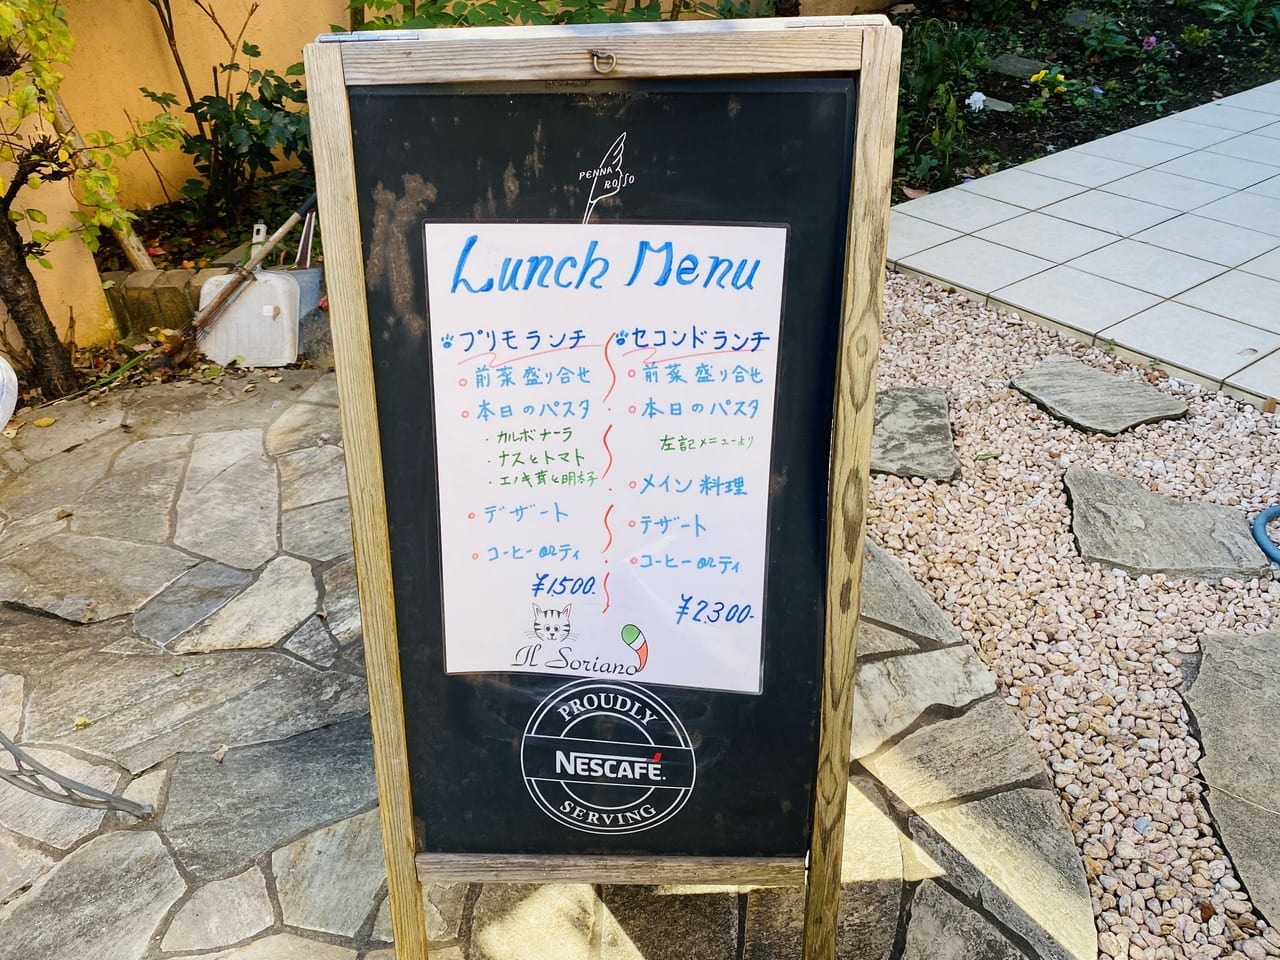 PENNA
ROSSO
Lunch Menu
プリモランチ
前菜盛り合せ
本日のパスタ
・カルボナーラ
・ナスとトマト
・エノキ茸と明太子
デザート
コーヒー orティ
¥1,500.
セコンドランチ
前菜盛り合せ
本日のパスタ
左記メニューより
メイン料理
デザート
コーヒー orティ
¥2,300-
Il Soriano
PROUDLY
NESCAFÉ.
SERVING